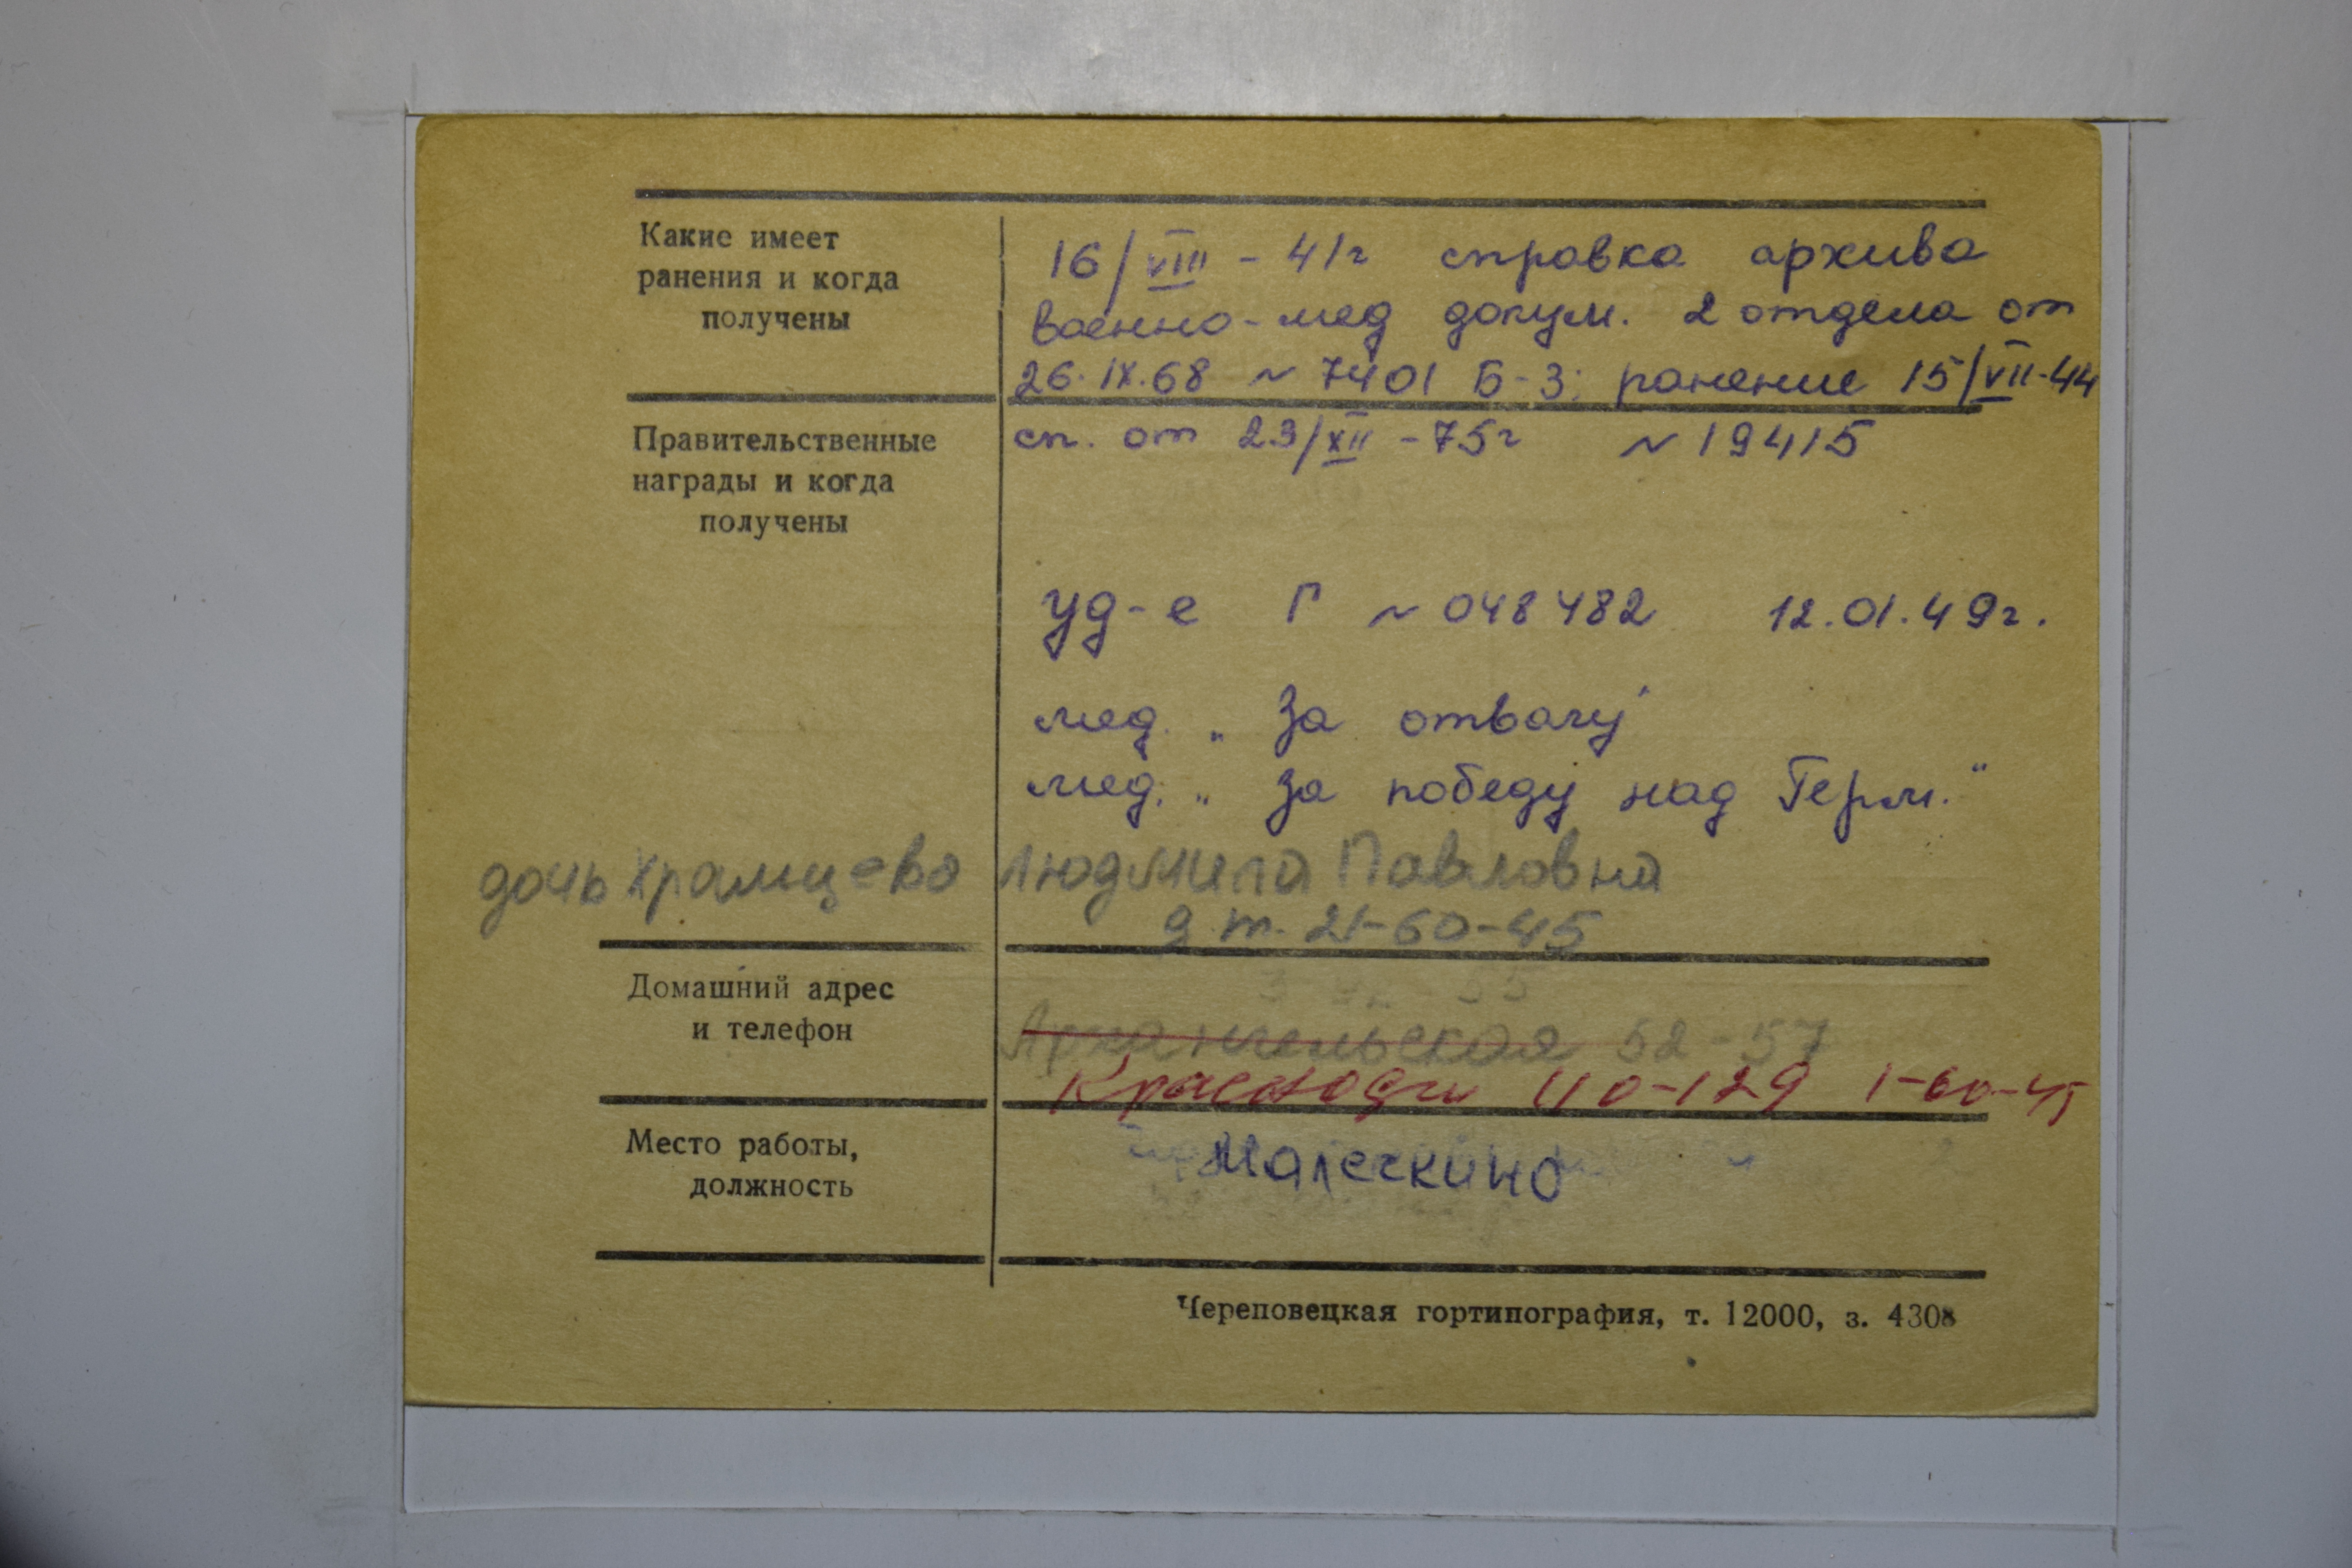 Какие имеет
ранения и когда
получены
16/VIII - 41г справка архива
военно-мед докум. 2 отдела от
26.IX.68 ~ 7401 Б-3; ранение 15/VII-44
Правительственные
награды и когда
получены
сп. от 23/XII - 75г ~ 19415
уд-е Г ~ 048482 12.01.49г.
мед. „За отвагу"
мед. „За победу над Герм."
дочь Храмцева Людмила Павловна
д.т. 21-60-45
Домашний адрес
и телефон
Архангельская 52-57
110-129 1-60-45
Место работы,
должность
Малечкино
Череповецкая гортипография, т. 12000, з. 4308